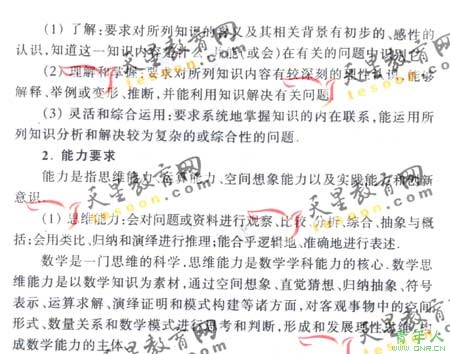 (1) 了解:要求对所列知识的含义及其相关背景有初步的、感性的
认识,知道这一知识内容是什么,并能(或会)在有关的问题中识别它.
(2) 理解和掌握:要求对所列知识内容有较深刻的理性认识,能够
解释、举例或变形、推断,并能利用知识解决有关问题.
(3) 灵活和综合运用:要求系统地掌握知识的内在联系,能运用所
列知识分析和解决较为复杂的或综合性的问题.
2. 能力要求
能力是指思维能力、运算能力、空间想象能力以及实践能力和创新
意识.
(1) 思维能力:会对问题或资料进行观察、比较、分析、综合、抽象与概
括;会用类比、归纳和演绎进行推理;能合乎逻辑地、准确地进行表述.
数学是一门思维的科学,思维能力是数学学科能力的核心.数学思
维能力是以数学知识为素材,通过空间想象、直觉猜想、归纳抽象、符号
表示、运算求解、演绎证明和模式构建等诸方面,对客观事物中的空间
形式、数量关系和数学模式进行思考和判断,形成和发展理性思维,构
成数学能力的主体.
天星教育网
tesoon.com
天星教育网
tesoon.com
天星教育网
tesoon.com
天星教育网
tesoon.com
青年人
QNR.CN